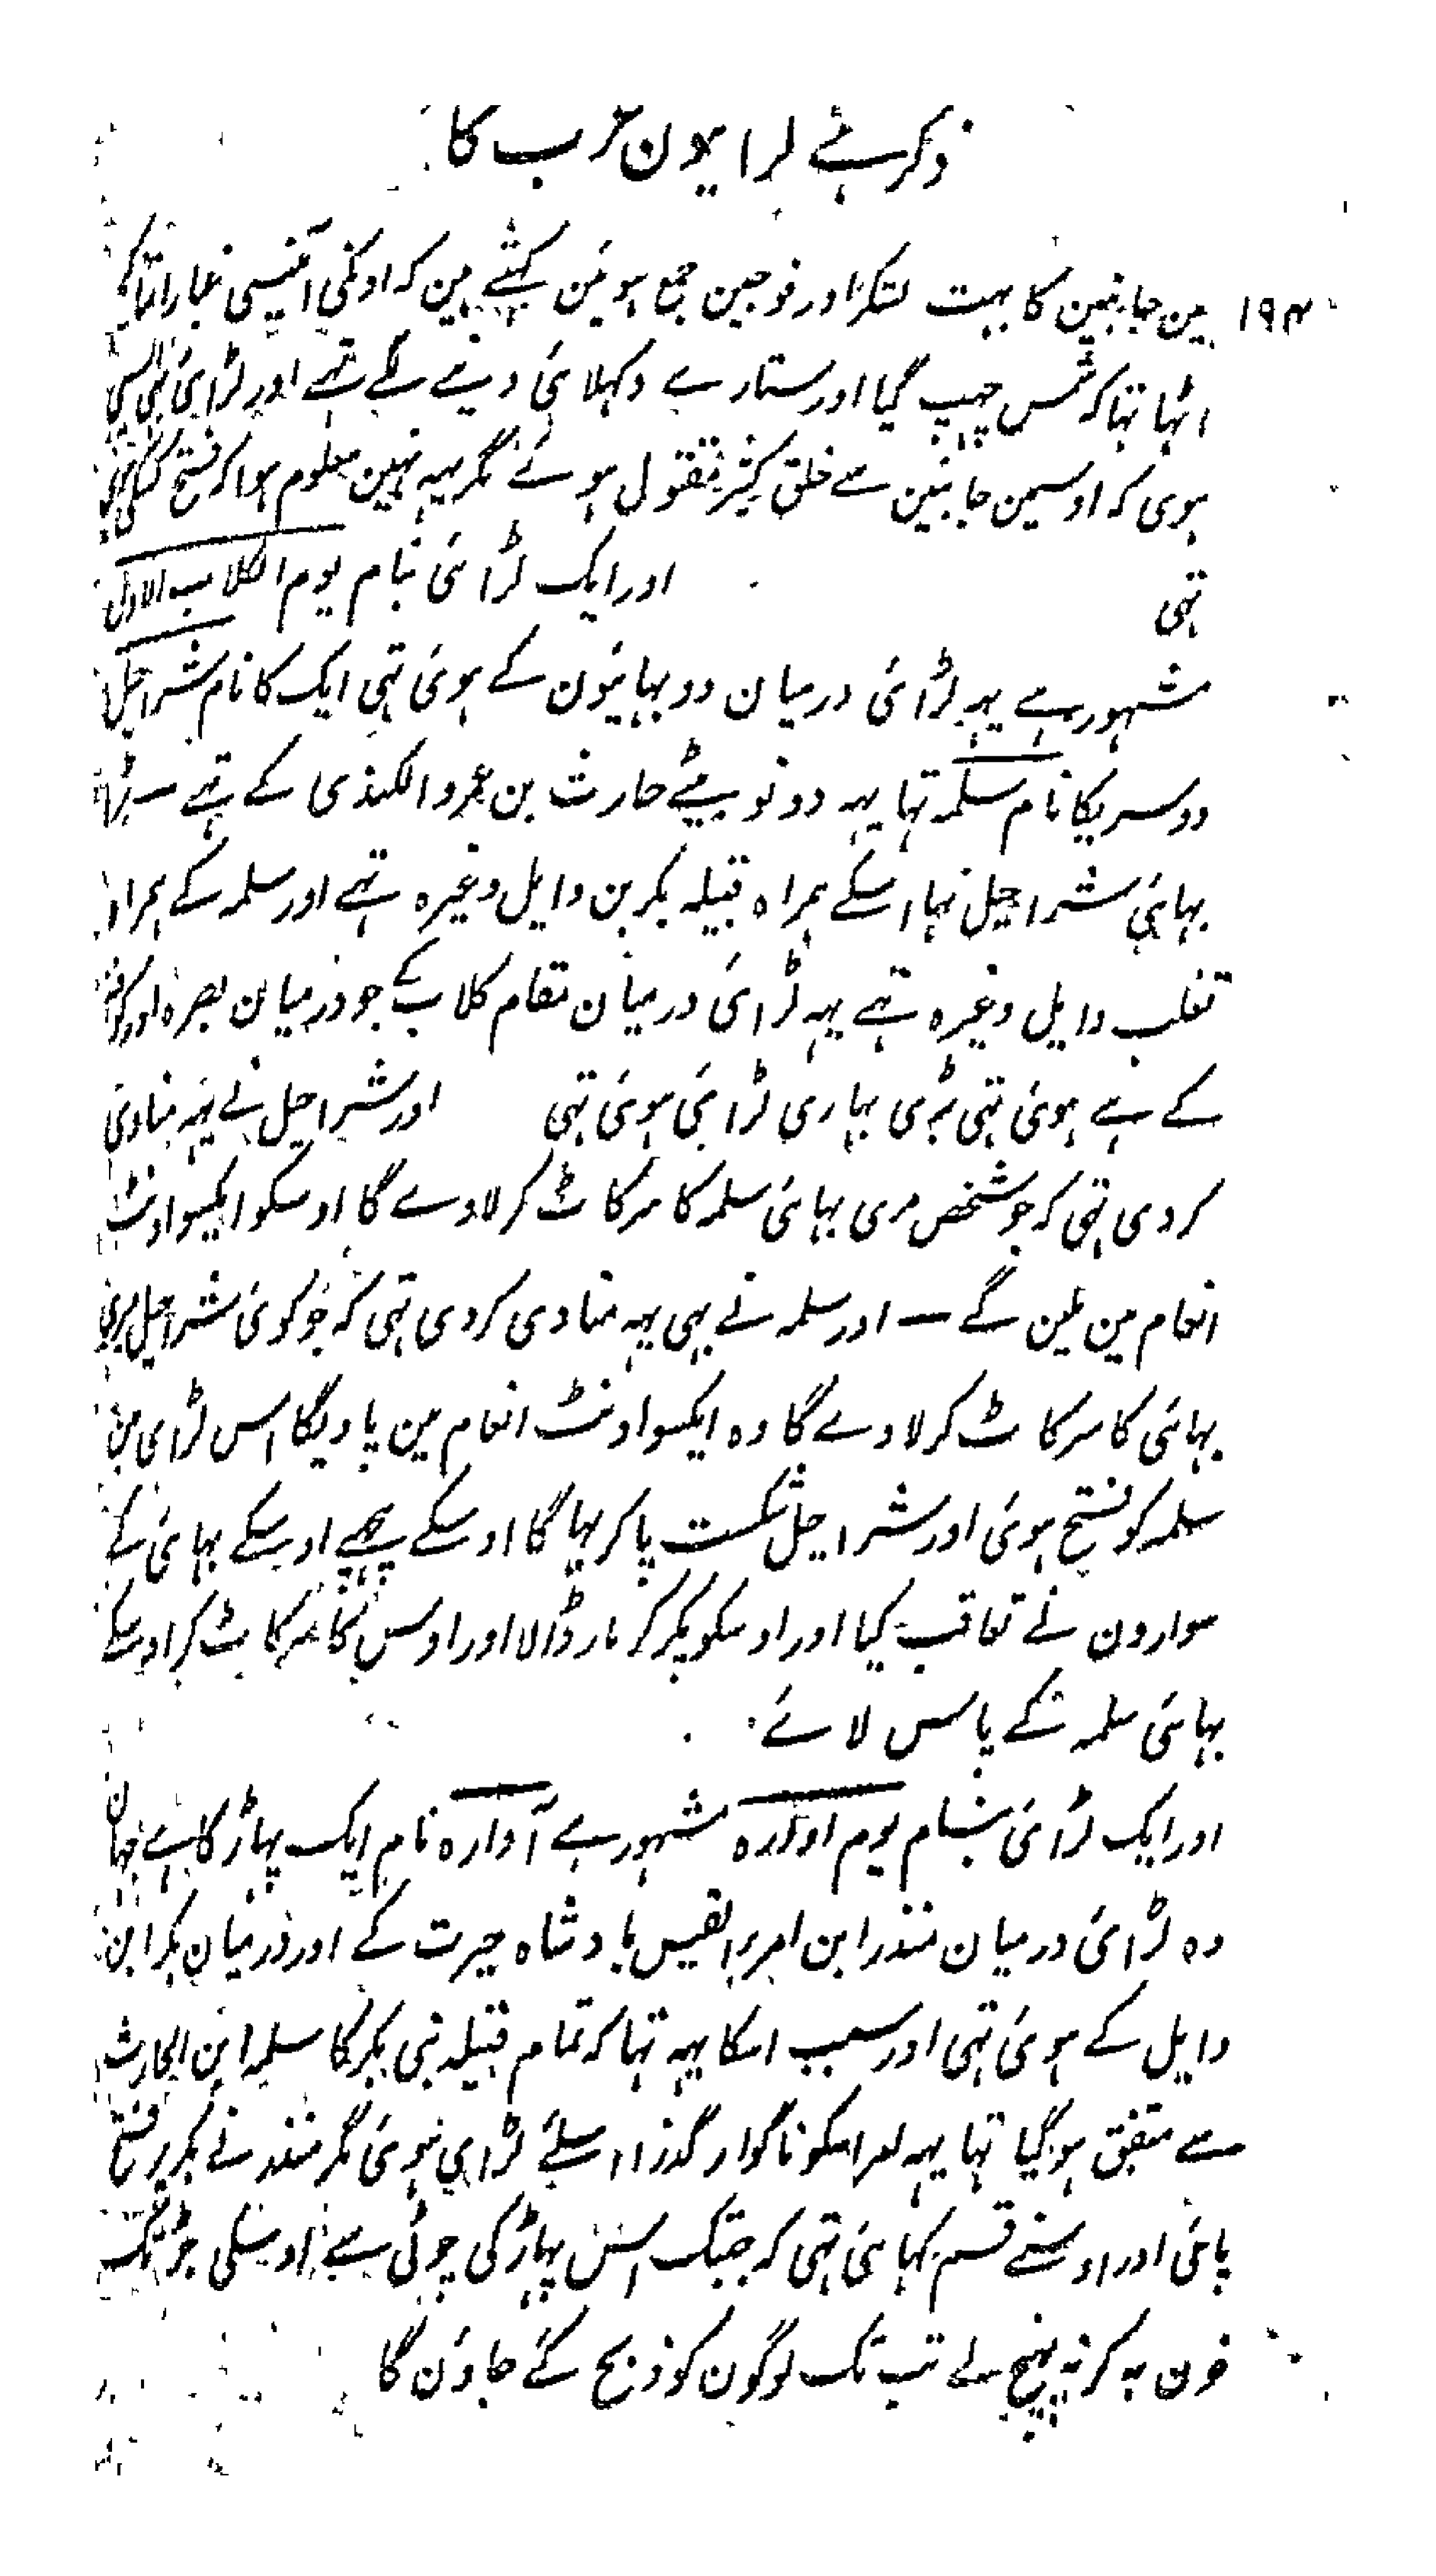 ذکر ہے لرایون عرب کا
۱۹۴ مین جانبین کا بہت لشکر اور فوجین جمع ہوئین کہتے ہین کہ اونکی اتنیسی غبار
اٹہا تہا کہ شمس چہپ گیا اور ستارے دکہلائی دینے لگے تہے اور لڑائی
ہوی کہ اوسمین جانبین سے خلق کثیر مقتول ہوئے مگر یہہ نہین معلوم ہوا کہ فتح
تہی اور ایک لڑائی بنام یوم الکلاب الاول
مشہور ہے یہہ لڑائی درمیان دو بہائیون کے ہوئی تہی ایک کا نام شراحیل
دوسریکا نام سلمہ تہا یہہ دونو بیٹے حارث بن عمرو الکندی کے تہے
بہائی شراحیل تہا اسکے ہمراہ قبیلہ بکر بن وایل وغیرہ تہے اور سلمہ کے ہمراہ
تغلب وایل وغیرہ تہے یہہ لڑائی درمیان مقام کلاب کے جو درمیان بصرہ اور
کے ہے ہوئی تہی بڑی بہاری لڑائی ہوئی تہی اور شراحیل نے یہہ منادی
کر دی تہی کہ جو شخص مری بہائی سلمہ کا سر کاٹ کر لادے گا اوسکو ایکسو اونٹ
انعام مین ملین گے — اور سلمہ نے بہی یہہ منادی کر دی تہی کہ جو کوئی شراحیل میری
بہائی کا سر کاٹ کر لادے گا وہ ایکسو اونٹ انعام مین پاویگا اس لڑای مین
سلمہ کو فتح ہوئی اور شراحیل شکست پا کر بہاگا اوسکے پیچہے اوسکے بہائی کے
سوارون نے تعاقب کیا اور اوسکو پکر کر مار ڈالا اور اوس کا سر کاٹ کر اوسکے
بہائی سلمہ کے پاس لائے
اور ایک لڑائی بنام یوم اوارہ مشہور ہے آوارہ نام ایک پہاڑ کا ہے جہان
وہ لڑائی درمیان منذر ابن امرء القیس بادشاہ حیرت کے اور درمیان بکر ابن
وایل کے ہوئی تہی اور سبب اسکا یہہ تہا کہ تمام قبیلہ بنی بکر کا سلمہ ابن الحارث
سے متفق ہو گیا تہا یہہ امر اسکو ناگوار گذرا اسلئے لڑایي ہوئی مگر منذر نے بکر پر فتح
پائی اور اوسنے قسم کہائی تہی کہ جبتک اس پہاڑ کی چوٹی سے اوسکی جڑ تک
خون بہ کر نہ پہنچ لے تب تک لوگون کو ذبح کئے جاوُن گا